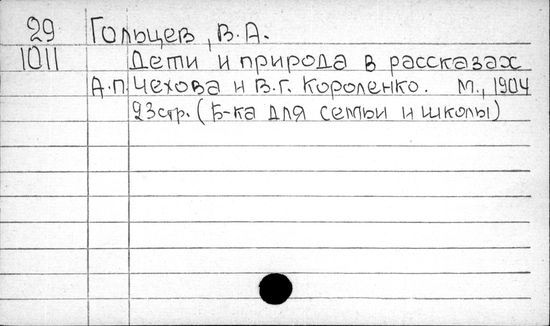 29 Гольцев, В.А.
1011 Дети и природа в рассказах
А.П. Чехова и В.Г. Короленко. М., 1904
23стр. (Б-ка для семьи и школы)